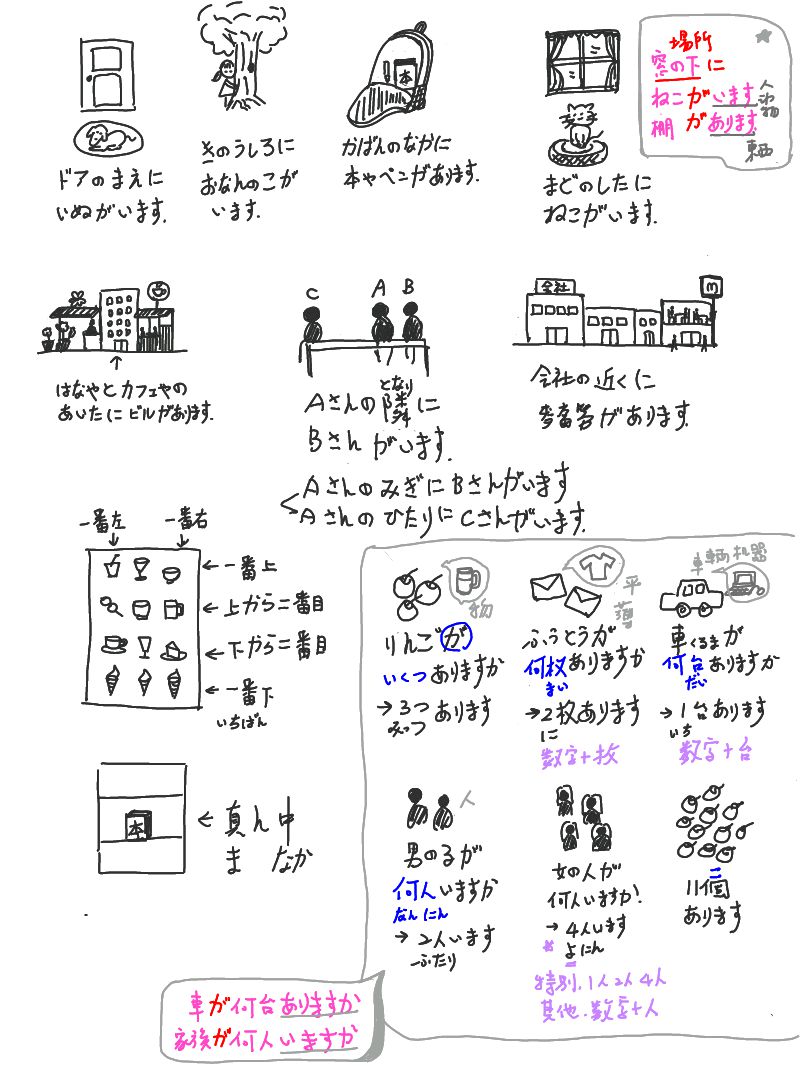 場所
窓の下に
ねこがいます
棚 があります
人
東西
本
ドアのまえに
いぬがいます.
きのうしろに
おなんのこが
います.
かばんのなかに
本やペンがあります.
まどのしたに
ねこがいます.
はなやとカフェやの
あいたにビルがあります.
C A B
となり
Aさんの隣に
Bさんがいます.
Aさんのみぎに Bさんがいます
Aさんのひたりに Cさんがいます.
会社
m
会社の近くに
があります.
一番左 一番右
←一番上
←上から二番目
←下から二番目
←一番下
いちばん
本
←真ん中
ま なか
物
りんごが
いくつありますか
→3つあります
みっつ
平
薄
ふうとうが
何枚ありますか
まい
→2枚あります
に
数字+枚
車輌机器
車くるまが
何台ありますか
だい
→1台あります
いち
数字+台
人
男のるが
何人いますか
なんにん
→2人います
ふたり
女の人が
何人いますか?
→4人います
よにん
特别.1人2人4人
其他.数字+人
11個
あります
車が何台ありますか
家後が何人いますか